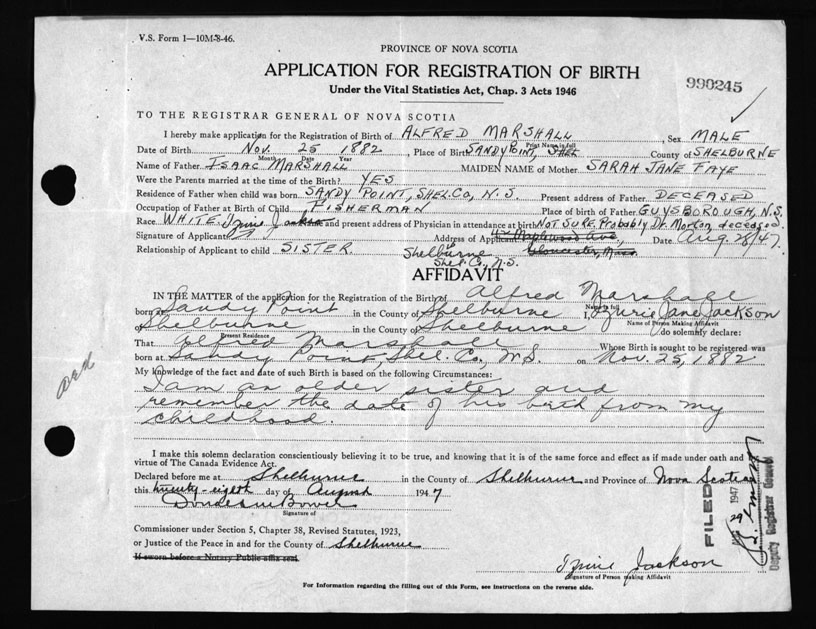 V.S. Form 1—10M-8-46.
PROVINCE OF NOVA SCOTIA
APPLICATION FOR REGISTRATION OF BIRTH
Under the Vital Statistics Act, Chap. 3 Acts 1946
990245
TO THE REGISTRAR GENERAL OF NOVA SCOTIA
I hereby make application for the Registration of Birth of ALFRED MARSHALL, Sex MALE
Print Name in full
Date of Birth Nov. 25 1882 Place of Birth SANDY POINT, SHEL County of SHELBURNE
Month Date Year
Name of Father ISAAC MARSHALL MAIDEN NAME of Mother SARAH JANE FAYE
Were the Parents married at the time of the Birth? YES
Residence of Father when child was born SANDY POINT, SHEL. CO., N.S. Present address of Father DECEASED
Occupation of Father at Birth of Child FISHERMAN Place of birth of Father GUYSBOROUGH, N.S.
Race WHITE. Name and present address of Physician in attendance at birth NOT SURE. Probably Dr. Morton, deceased.
Signature of Applicant Jackson Address of Applicant Maplewood Ave., Date Aug. 28/47.
Gloucester, Mass.
Relationship of Applicant to child SISTER. Shelburne
Shel. Co., N.S.
AFFIDAVIT
IN THE MATTER of the application for the Registration of the Birth of Alfred Marshall
born at Sandy Point in the County of Shelburne I, Jane Jackson
Name of Person Making Affidavit
of Shelburne in the County of Shelburne do solemnly declare:
Present Residence
That Alfred Marshall Whose Birth is sought to be registered was
born at Sandy Point, Shel. Co., N.S. on Nov. 25, 1882
My knowledge of the fact and date of such Birth is based on the following Circumstances:
I am an older sister and
remember the date of his birth from my
childhood.
I make this solemn declaration conscientiously believing it to be true, and knowing that it is of the same force and effect as if made under oath and by
virtue of The Canada Evidence Act.
Declared before me at Shelburne in the County of Shelburne and Province of Nova Scotia
this twenty-eighth day of August 1947
Signature of
Commissioner under Section 5, Chapter 38, Revised Statutes, 1923,
or Justice of the Peace in and for the County of Shelburne
If sworn before a Notary Public affix seal.
Jackson
Signature of Person making Affidavit
For Information regarding the filling out of this Form, see instructions on the reverse side.
FILED
29 1947
Deputy Registrar General